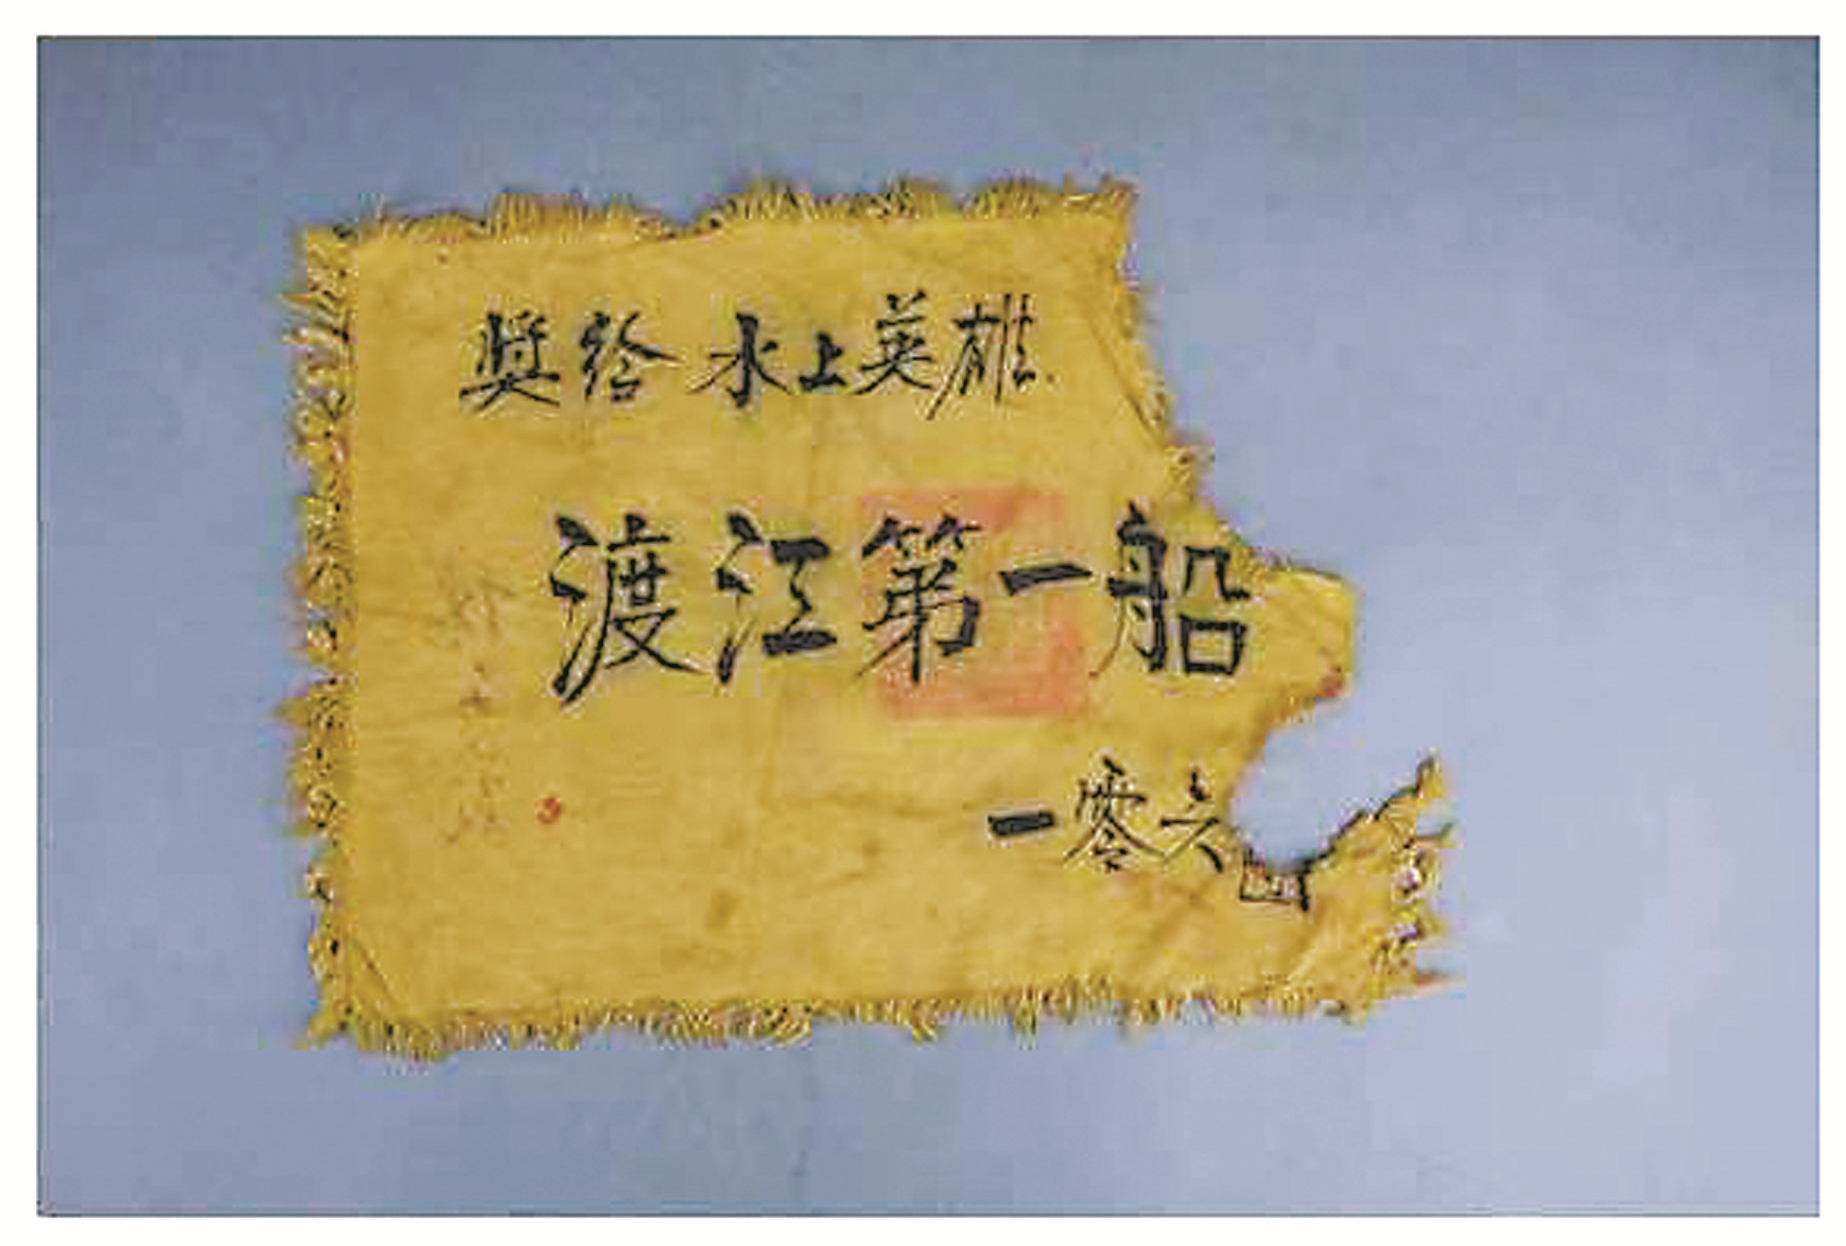 奬给 水上英雄
渡江第一船
一零六